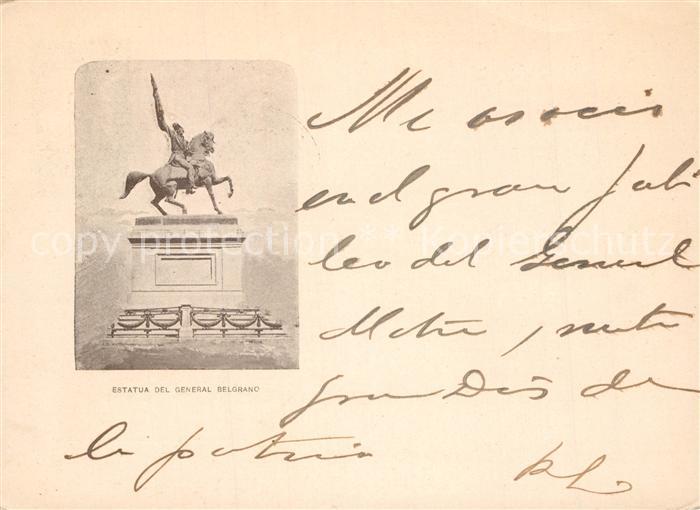 Me asocio
en el gran Jubi
leo del General
Mitre, 
gran Dios de
la patria
ESTATUA DEL GENERAL BELGRANO
copy protection ** Kopierschutz